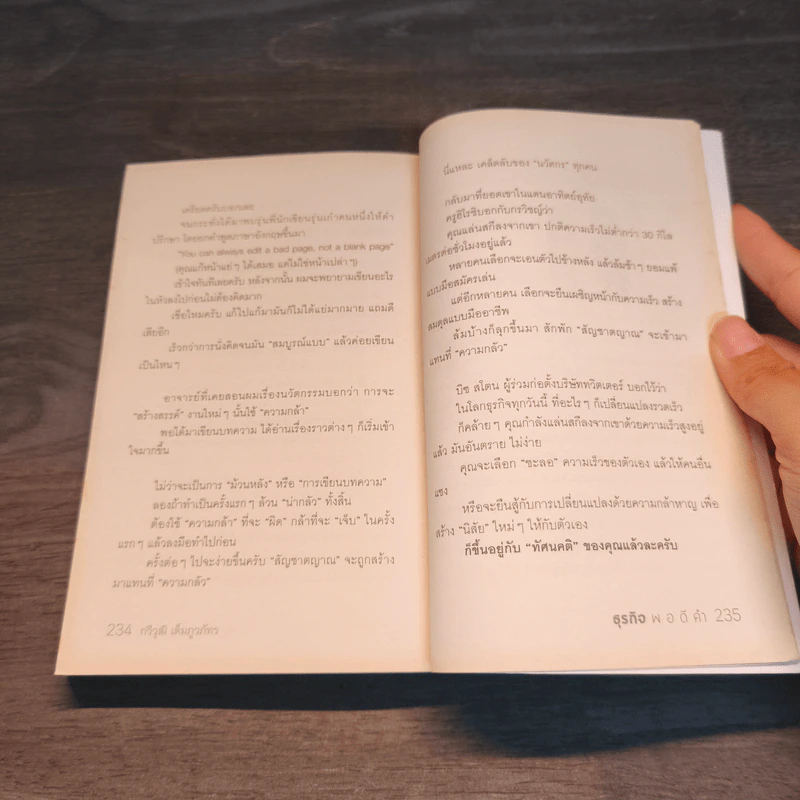 เครียดครับบอกเลย
จนกระทั่งได้มาพบรุ่นพี่นักเขียนรุ่นเก๋าคนหนึ่งให้คำ
ปรึกษา โดยยกคำพูดภาษาอังกฤษขึ้นมา
"You can always edit a bad page, not a blank page"
(คุณแก้หน้าแย่ๆ ได้เสมอ แต่ไม่ใช่หน้าเปล่าๆ)
เข้าใจทันทีเลยครับ หลังจากนั้น ผมจะพยายามเขียนอะไร
ในหัวลงไปก่อนไม่ต้องคิดมาก
เชื่อไหมครับ แก้ไปแก้มามันก็ไม่ได้แย่มากมาย แถมดี
เสียอีก
เร็วกว่าการนั่งคิดจนมัน "สมบูรณ์แบบ" แล้วค่อยเขียน
เป็นไหนๆ
อาจารย์ที่เคยสอนผมเรื่องนวัตกรรมบอกว่า การจะ
"สร้างสรรค์" งานใหม่ๆ นั้นใช้ "ความกล้า"
พอได้มาเขียนบทความ ได้อ่านเรื่องราวต่างๆ ก็เริ่มเข้า
ใจมากขึ้น
ไม่ว่าจะเป็นการ "ม้วนหลัง" หรือ "การเขียนบทความ"
ลองถ้าทำเป็นครั้งแรกๆ ล้วน "น่ากลัว" ทั้งสิ้น
ต้องใช้ "ความกล้า" ที่จะ "ผิด" กล้าที่จะ "เจ็บ" ในครั้ง
แรกๆ แล้วลงมือทำไปก่อน
ครั้งต่อๆ ไปจะง่ายขึ้นครับ "สัญชาตญาณ" จะถูกสร้าง
มาแทนที่ "ความกลัว"
234 กวีวุฒิ เต็มภูวภัทร
นี่แหละ เคล็ดลับของ "นวัตกร" ทุกคน
กลับมาที่ยอดเขาในแดนอาทิตย์อุทัย
ครูฮิโรชิบอกกับกรวิชญ์ว่า
คุณเล่นสกีลงจากเขา ปกติความเร็วไม่ต่ำกว่า 30 กิโล
เมตรต่อชั่วโมงอยู่แล้ว
หลายคนเลือกจะเอนตัวไปข้างหลัง แล้วล้มช้าๆ ยอมแพ้
แบบมือสมัครเล่น
แต่อีกหลายคน เลือกจะยืนเผชิญหน้ากับความเร็ว สร้าง
สมดุลแบบมืออาชีพ
ล้มบ้างก็ลุกขึ้นมา สักพัก "สัญชาตญาณ" จะเข้ามา
แทนที่ "ความกลัว"
บิซ สโตน ผู้ร่วมก่อตั้งบริษัททวิตเตอร์ บอกไว้ว่า
ในโลกธุรกิจทุกวันนี้ ที่อะไรๆ ก็เปลี่ยนแปลงรวดเร็ว
ก็คล้ายๆ คุณกำลังแล่นสกีลงจากเขาด้วยความเร็วสูงอยู่
แล้ว มันอันตราย ไม่ง่าย
คุณจะเลือก "ชะลอ" ความเร็วของตัวเอง แล้วให้คนอื่น
แซง
หรือจะยืนสู้กับการเปลี่ยนแปลงด้วยความกล้าหาญ เพื่อ
สร้าง "นิสัย" ใหม่ๆ ให้กับตัวเอง
ก็ขึ้นอยู่กับ "ทัศนคติ" ของคุณแล้วละครับ
ธุรกิจ พ อ ดี คำ 235